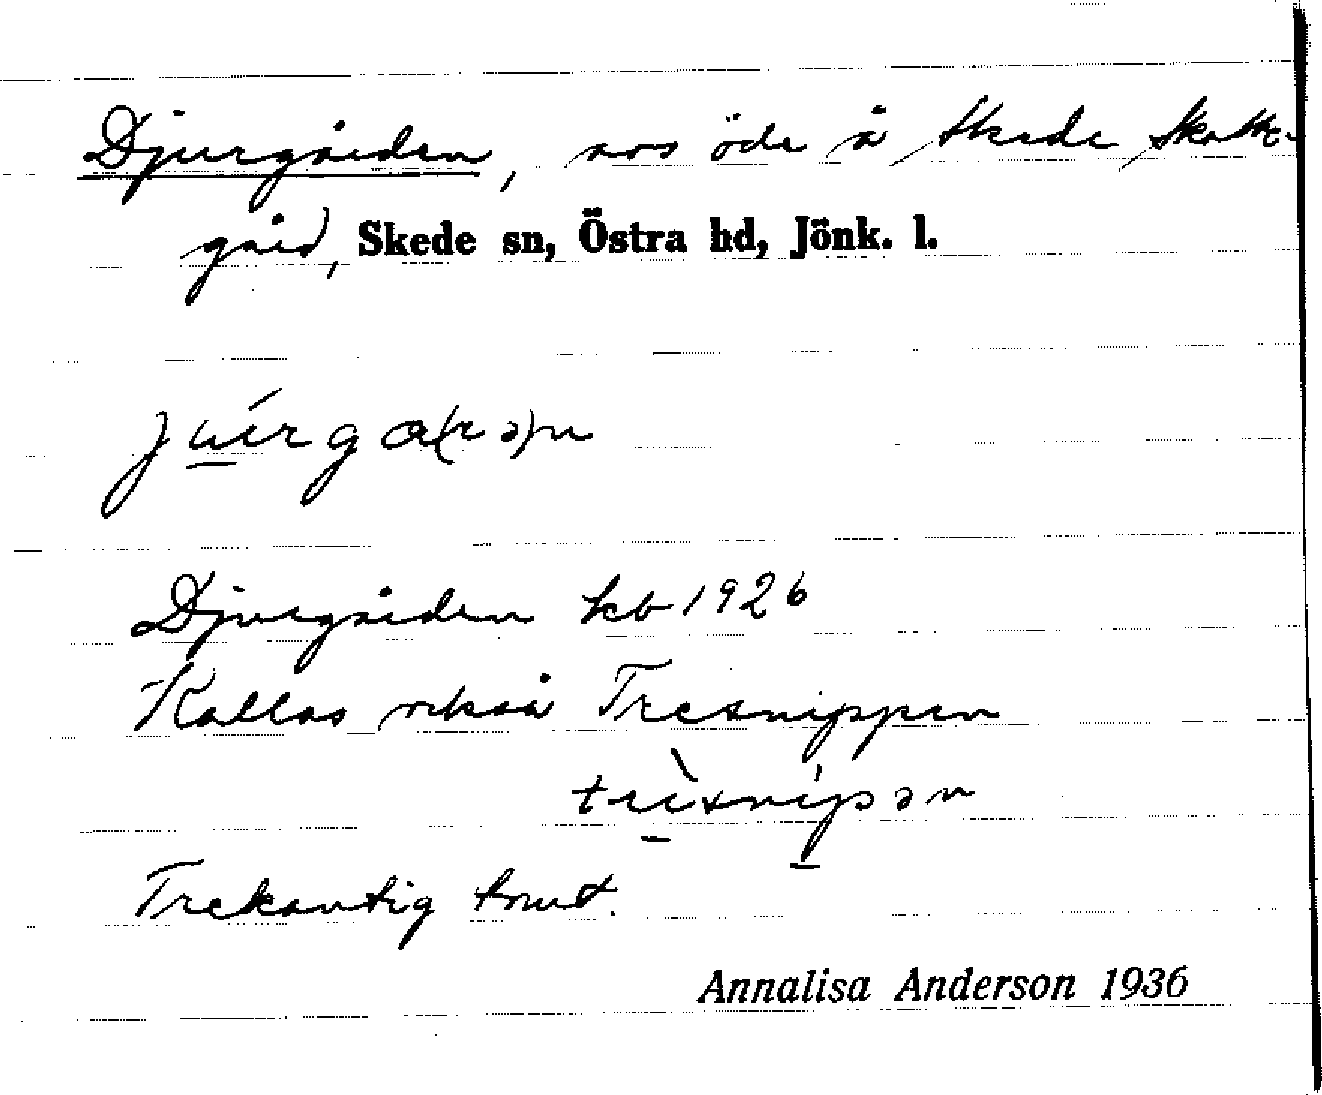 Djurgården, nos öde å Skede Skatte-
gård, Skede sn, Östra hd, Jönk. l.
Djurgården kb 1926
Kallas också Tresnippen
trìsnípən
Trekantig tomt.
Annalisa Anderson 1936